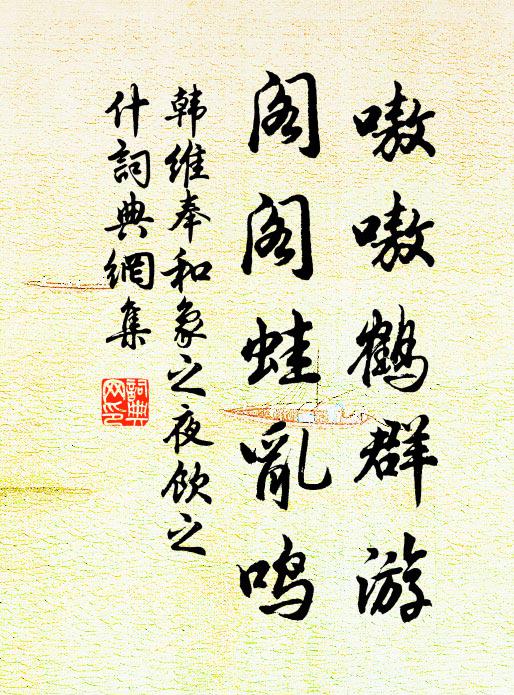 嗷嗷鶴群游
阁阁蛙亂鸣
韩維奉和象之夜飲之
什詞典網集
詞典网印